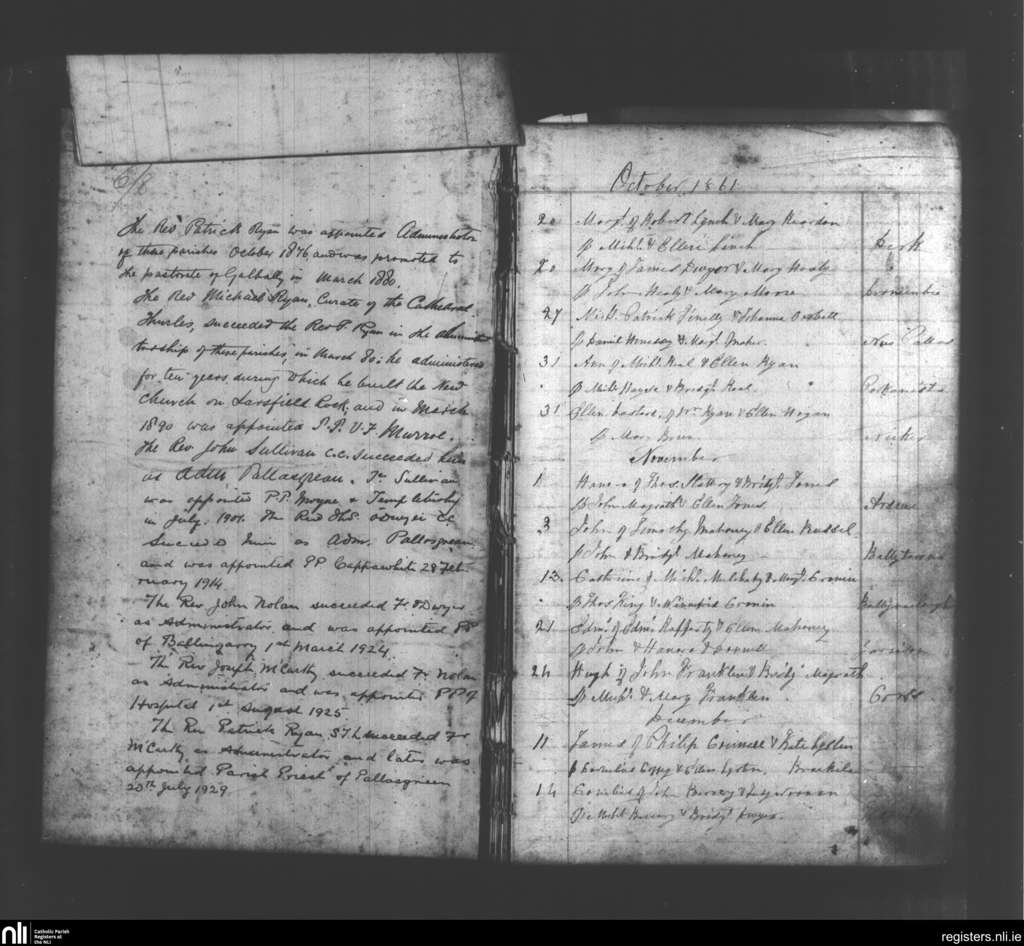 6/8
The Rev Patrick Ryan was appointed Administrator
of these parishes October 1876 and was promoted to
the pastorate of Galbally in March 1880.
The Rev Michael Ryan, Curate of the Cathedral
Thurles, succeeded the Rev P. Ryan in the administ
torship of these parishes, in March 80; he administered
for ten years during which he built the New
Church on Sarsfield Rock, and in March
1890 was appointed P.P. V.F Murroe.
The Rev John Sullivan C.C. succeeded him
as Adm Pallasgrean. Fr Sullivan
was appointed P.P. Moyne & Templetuohy
in July, 1901. The Revd Thos O'Dwyer CC
succeed him as Adm. Pallasgrean
and was appointed PP Cappawhite 28 Feb-
ruary 1914
The Rev John Nolan succeeded Fr O'Dwyer
as Administrator and was appointed PP
of Ballingarry 1st March 1924.
The Rev Joseph McCarthy succeeded Fr Nolan
as Administrator and was appointed P.P of
Hospital 1st August 1925.
The Rev Patrick Ryan, succeeded Fr
McCarthy as Administrator and later was
appointed Parish Priest of Pallasgreen
20th July 1929
October 1861
20 Margt of Robert Lynch & Mary Reardon
Sp Michl & Ellen Linch
20 Mary of James Dwyer & Mary Healy
Sp John Healy & Mary Moore
27 Michl Patrick & Johanna
Sp Daniel Hennessy & Margt Maher New Pallas
31 Ann of Michl Real & Ellen Ryan
Sp Michl & Bridgt Real
31 Ellen of Wm Ryan & Ellen Hogan
Sp Mary Nicker
November
1 Hanora of Thos Slattery & Bridgt Jones
Sp John Magrath & Ellen Jones
3 John of Timothy Mahoney & Ellen Russel
Sp John & Bridgt Mahoney
13 Catherine of Michl Mulcahy & Margt Cronin
Sp Thos King & Winnifrid Cronin
21 Edmd of Edmd Rafferty & Ellen Mahoney
Sp John & Hanora
24 Hugh of John Franklin & Bridgt Magrath
Sp Michl & Mary Franklen
December
11 James of Philip & Kate
Sp Cornelius & Ellen
14 Cornelius of John &
Sp Michl & Bridgt Dwyer.
nli
Catholic Parish
Registers at
the NLI
registers.nli.ie